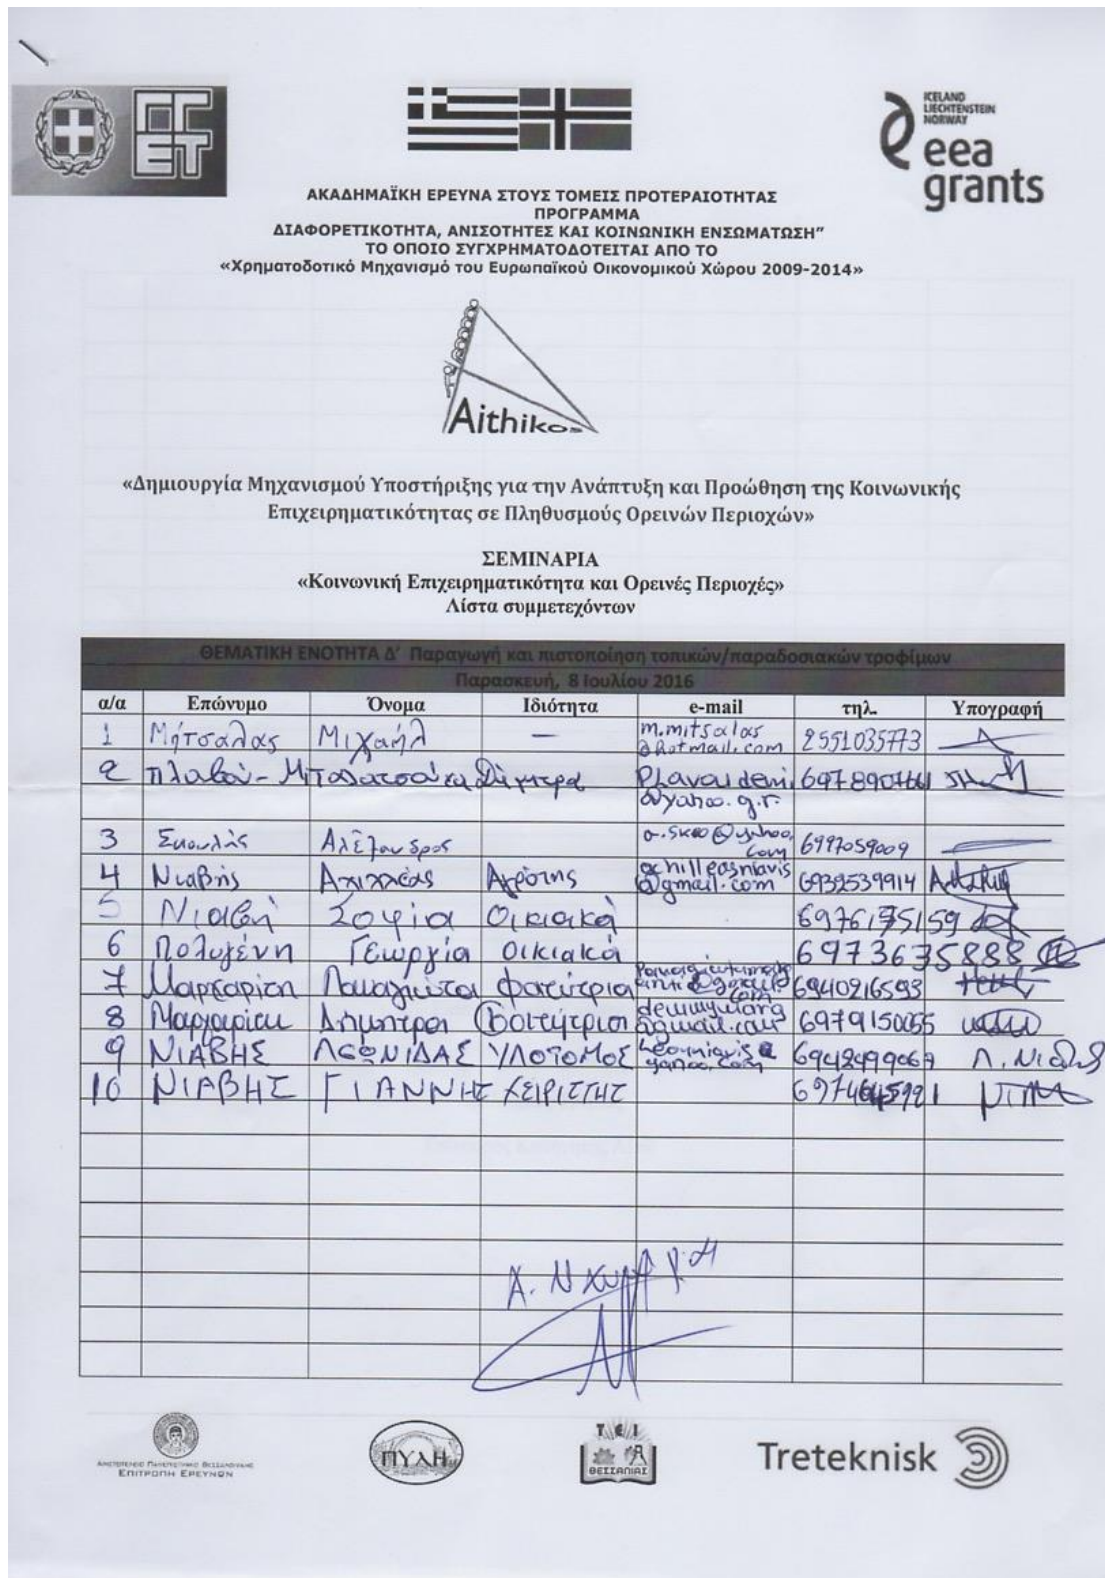 ΓΓΕΤ
ICELAND
LIECHTENSTEIN
NORWAY
eea
grants
ΑΚΑΔΗΜΑΪΚΗ ΕΡΕΥΝΑ ΣΤΟΥΣ ΤΟΜΕΙΣ ΠΡΟΤΕΡΑΙΟΤΗΤΑΣ
ΠΡΟΓΡΑΜΜΑ
ΔΙΑΦΟΡΕΤΙΚΟΤΗΤΑ, ΑΝΙΣΟΤΗΤΕΣ ΚΑΙ ΚΟΙΝΩΝΙΚΗ ΕΝΣΩΜΑΤΩΣΗ”
ΤΟ ΟΠΟΙΟ ΣΥΓΧΡΗΜΑΤΟΔΟΤΕΙΤΑΙ ΑΠΟ ΤΟ
«Χρηματοδοτικό Μηχανισμό του Ευρωπαϊκού Οικονομικού Χώρου 2009-2014»
Aithikos
«Δημιουργία Μηχανισμού Υποστήριξης για την Ανάπτυξη και Προώθηση της Κοινωνικής
Επιχειρηματικότητας σε Πληθυσμούς Ορεινών Περιοχών»
ΣΕΜΙΝΑΡΙΑ
«Κοινωνική Επιχειρηματικότητα και Ορεινές Περιοχές»
Λίστα συμμετεχόντων
ΘΕΜΑΤΙΚΗ ΕΝΟΤΗΤΑ Δ’ Παραγωγή και πιστοποίηση τοπικών/παραδοσιακών τροφίμων
Παρασκευή, 8 Ιουλίου 2016
α/α Επώνυμο Όνομα Ιδιότητα e-mail τηλ. Υπογραφή
1 Μήτσαλας Μιχαήλ — m.mitsalas@hotmail.com 2551035773
2 Δήμητρα @yahoo.gr
3 Σκουλής Αλέξανδρος a.skoo@yahoo.com 6997059009
4 Νιαβής Αχιλλέας Αγρότης achilleasniavis@gmail.com 6939539914
5 Νιαβή Σοφία Οικιακά 6976175159
6 Πολυγένη Γεωργία οικιακά 6973635888
7 Μαργαρίτη Παναγιώτα φοιτήτρια 6940216593
8 Μαργαρίτη Δήμητρα Φοιτήτρια @gmail.com
9 ΝΙΑΒΗΣ ΛΕΩΝΙΔΑΣ ΥΛΟΤΟΜΟΣ leoniavis@yahoo.com 6942499067 Λ. Νιαβής
10 ΝΙΑΒΗΣ ΓΙΑΝΝΗΣ ΧΕΙΡΙΣΤΗΣ
ΑΡΙΣΤΟΤΕΛΕΙΟ ΠΑΝΕΠΙΣΤΗΜΙΟ ΘΕΣΣΑΛΟΝΙΚΗΣ
ΕΠΙΤΡΟΠΗ ΕΡΕΥΝΩΝ
ΠΥΛΗ
Τ Ε Ι
ΘΕΣΣΑΛΙΑΣ
Treteknisk